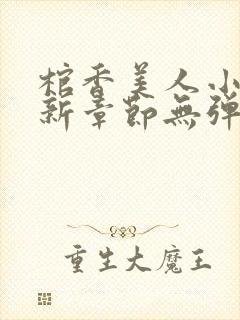 棺香美人小
新章節無弹
重生大魔王